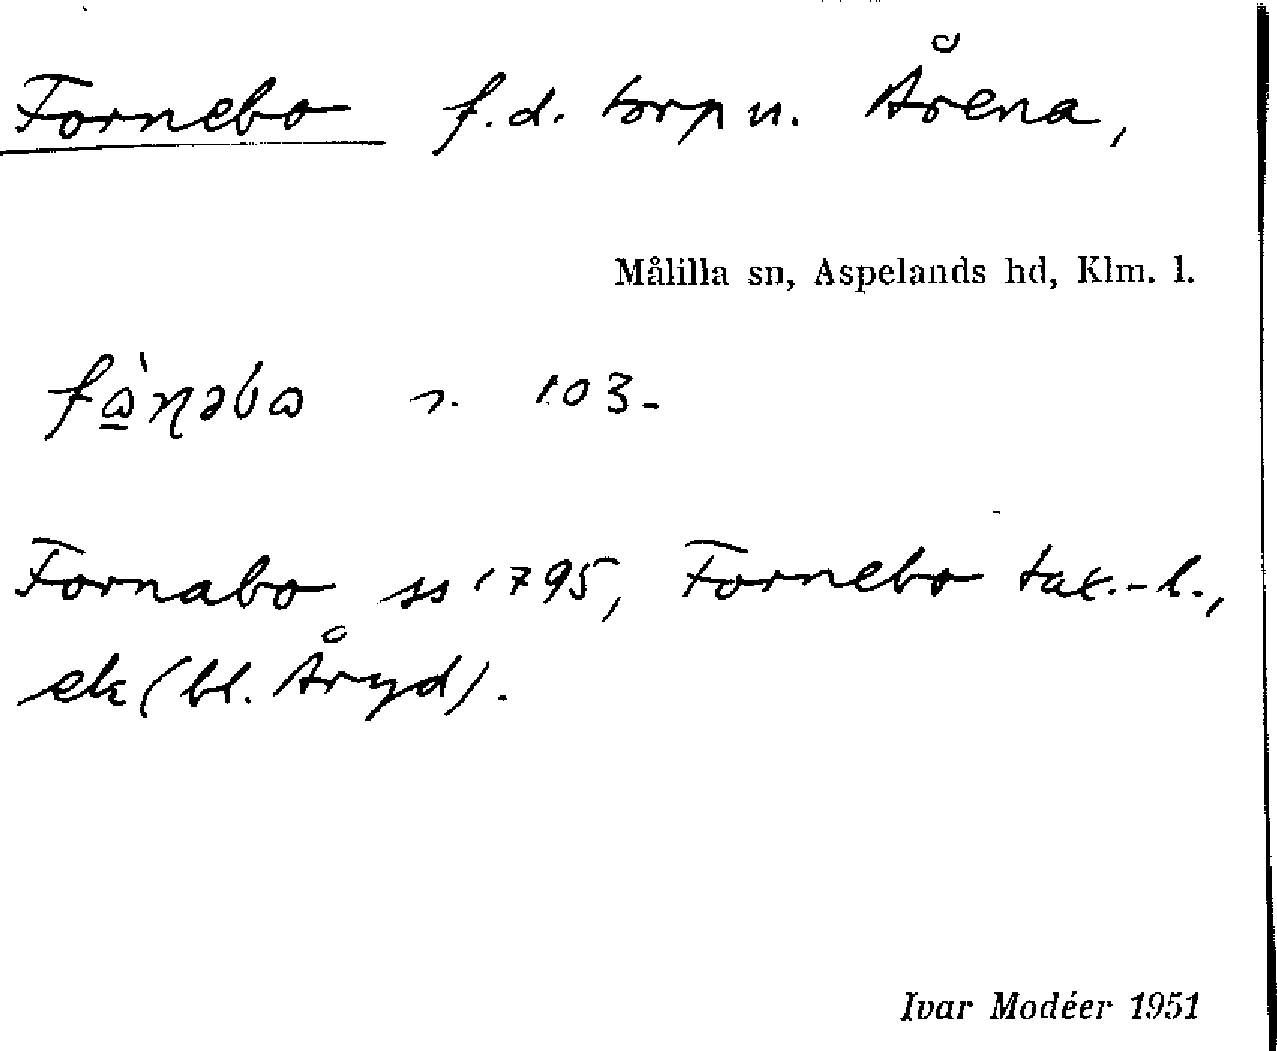 Fornebo f.d. torp u. Årena,
Målilla sn, Aspelands hd, Klm. l.
få̀ṇəbo s. 103-
Fornabo ss 1795, Fornebo tax.-l.,
ek (bl. Åryd).
Ivar Modéer 1951